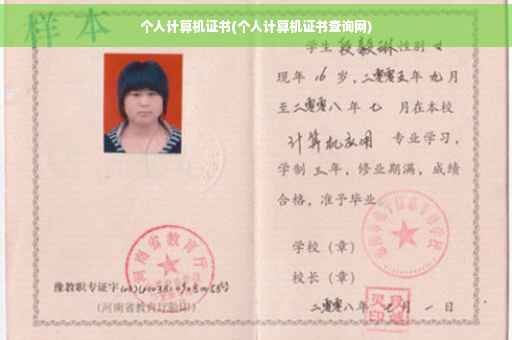 个人计算机证书(个人计算机证书查询网)
样本
学生 段毅琳 性别 女
现年 16 岁，二零零五年 九 月
至二零零八 年 七 月在本校
计算机应用 专业学习，
学制 三 年，修业期满，成绩
合格，准予毕业。
学校（章）
校长（章）
二零零八年 七 月 一 日
河南省教育厅
豫教职专证字
(河南省教育厅验印)